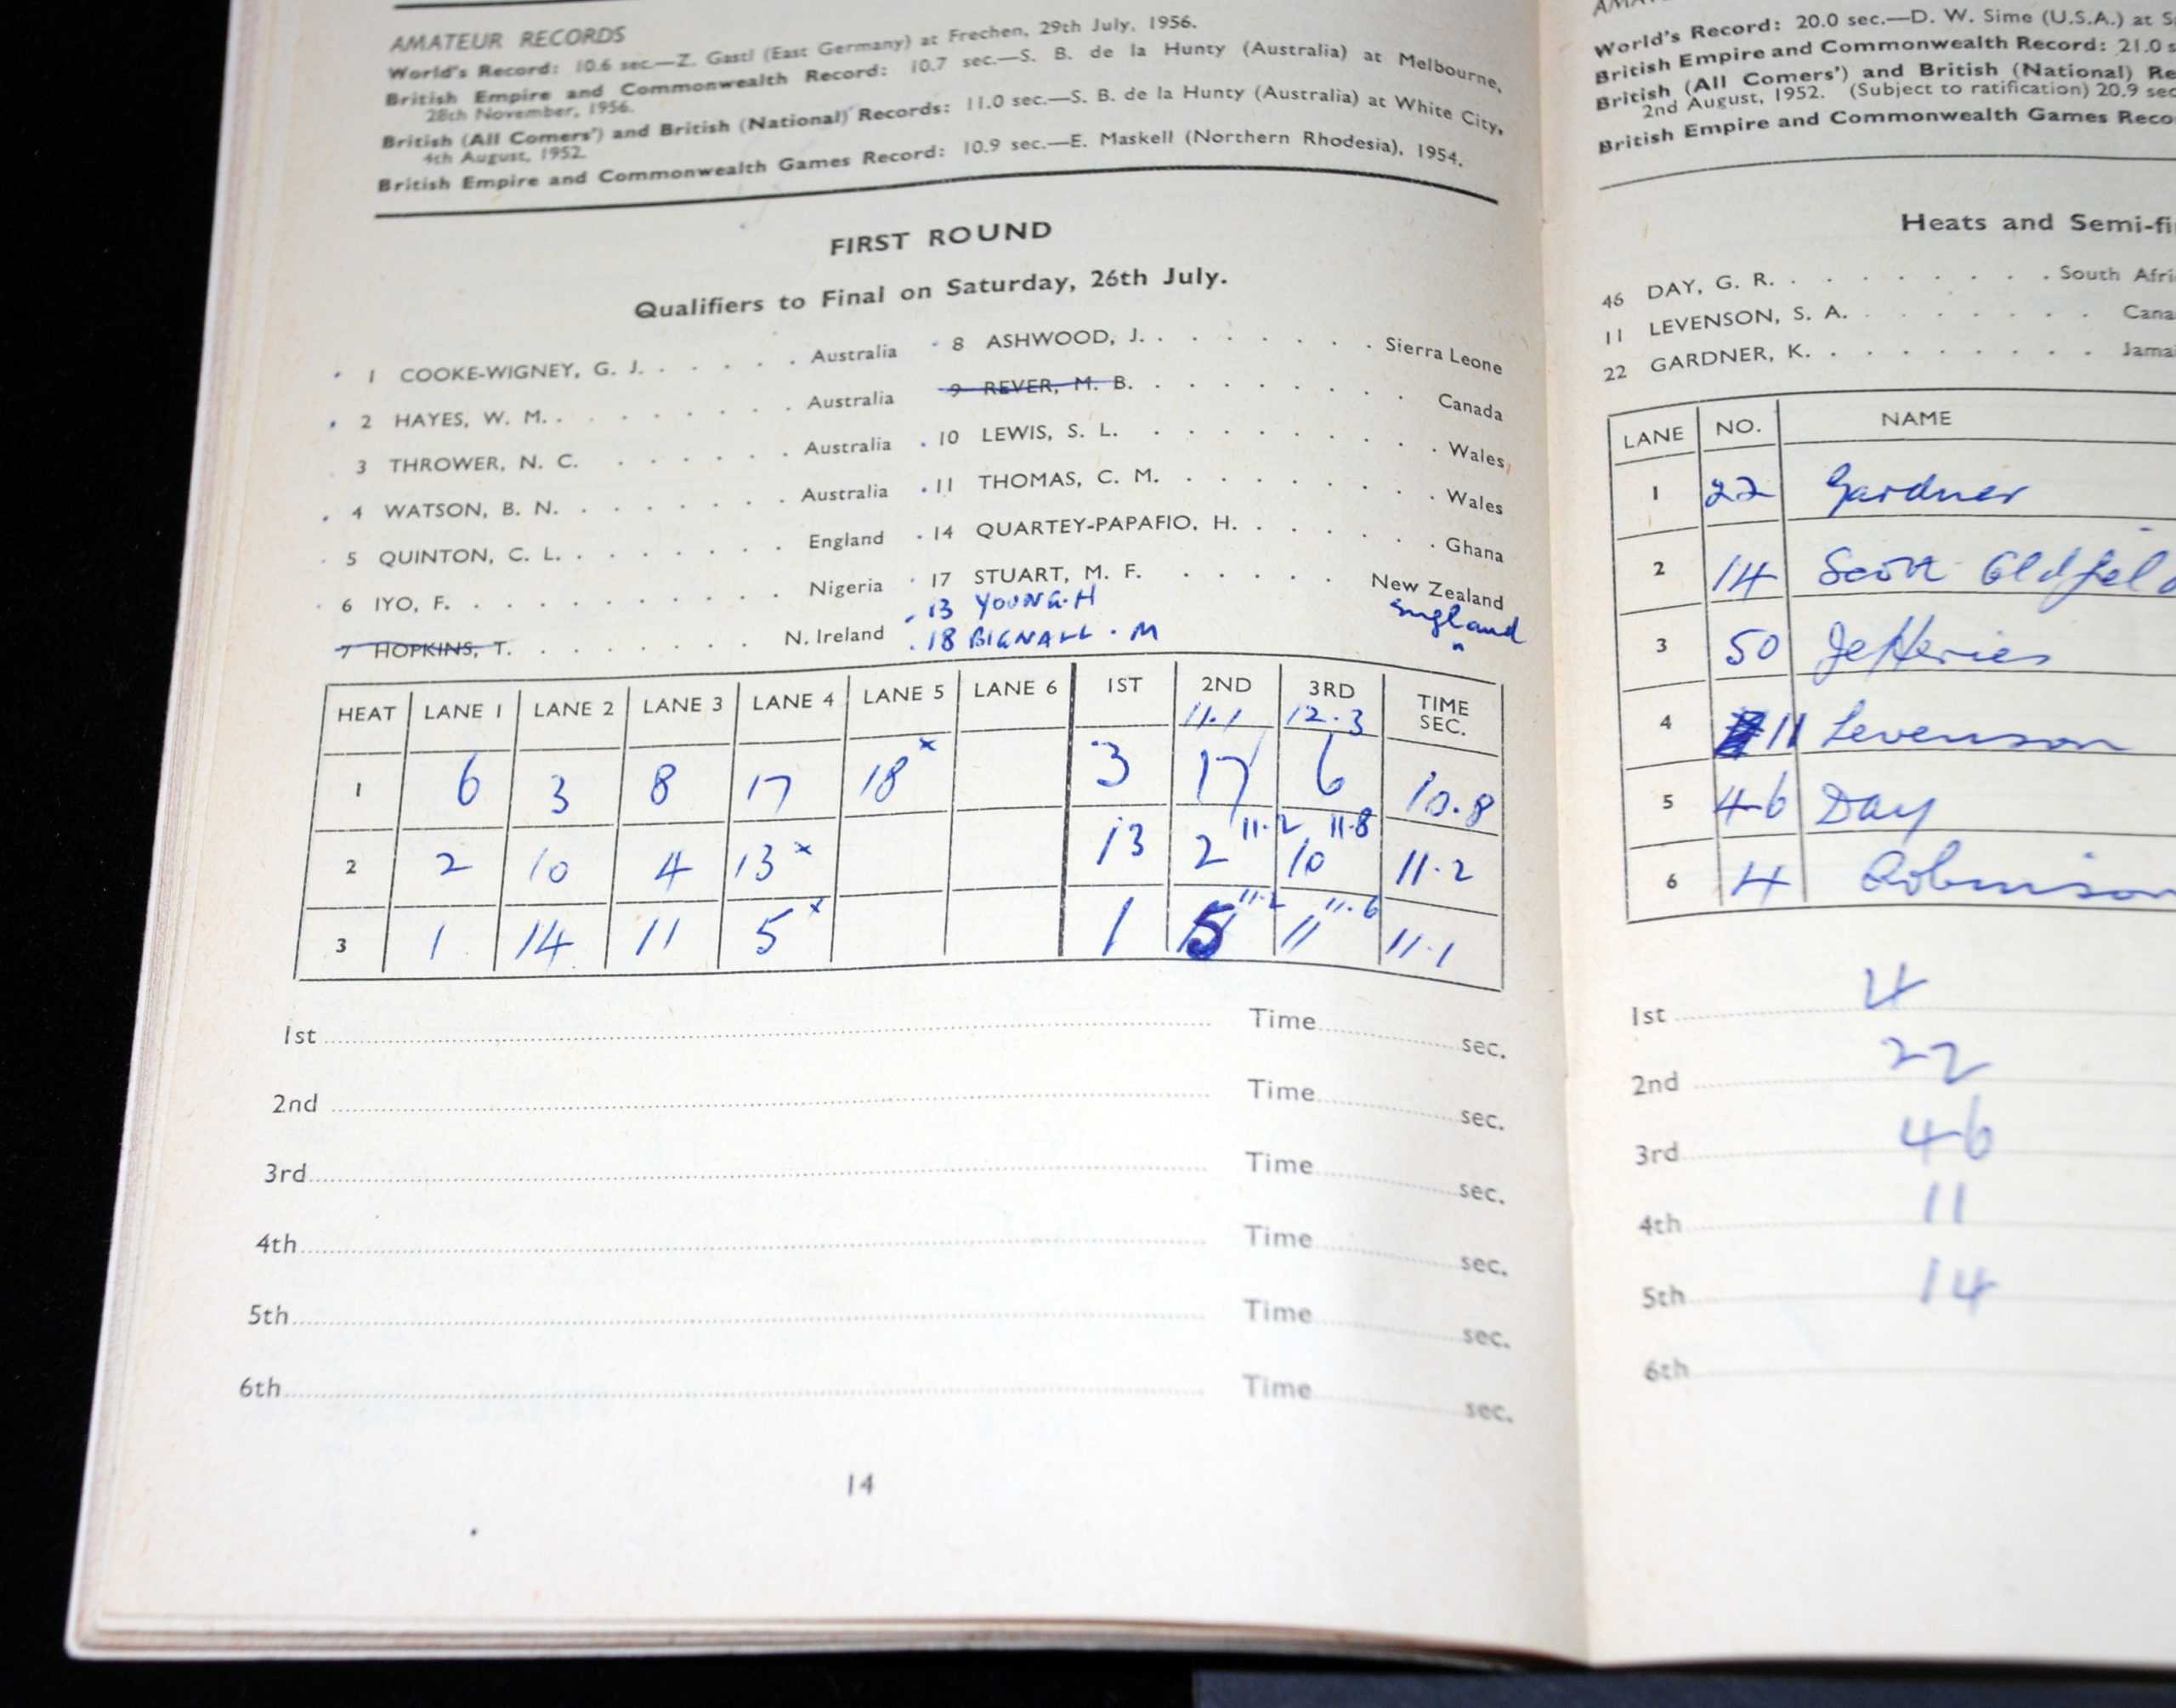 AMATEUR RECORDS
World's Record: 10.6 sec.—Z. Gastl (East Germany) at Frechen, 29th July, 1956.
British Empire and Commonwealth Record: 10.7 sec.—S. B. de la Hunty (Australia) at Melbourne,
28th November, 1956.
British (All Comers') and British (National) Records: 11.0 sec.—S. B. de la Hunty (Australia) at White City,
4th August, 1952.
British Empire and Commonwealth Games Record: 10.9 sec.—E. Maskell (Northern Rhodesia), 1954.
FIRST ROUND
Qualifiers to Final on Saturday, 26th July.
1 COOKE-WIGNEY, G. J. . . . . . Australia
2 HAYES, W. M. . . . . . . . Australia
3 THROWER, N. C. . . . . . . Australia
4 WATSON, B. N. . . . . . . . Australia
5 QUINTON, C. L. . . . . . . . England
6 IYO, F. . . . . . . . . . . Nigeria
7 HOPKINS, T. . . . . . . . N. Ireland
8 ASHWOOD, J. . . . . . . . Sierra Leone
9 REVER, M. B. . . . . . . . . Canada
10 LEWIS, S. L. . . . . . . . . . Wales
11 THOMAS, C. M. . . . . . . . . Wales
14 QUARTEY-PAPAFIO, H. . . . . . . Ghana
17 STUART, M. F. . . . . . New Zealand
13 YOUNG. H England
18 BIGNALL . M "
HEAT LANE 1 LANE 2 LANE 3 LANE 4 LANE 5 LANE 6 1ST 2ND 3RD TIME SEC.
11.1 12.3
1 6 3 8 17 18 x 3 17 6 10.8
11.2 11.8
2 2 10 4 13 x 13 2 10 11.2
11.2 11.6
3 1 14 11 5 x 1 5 11 11.1
1st Time sec.
2nd Time sec.
3rd Time sec.
4th Time sec.
5th Time sec.
6th Time sec.
14
World's Record: 20.0 sec.—D. W. Sime (U.S.A.) at S
British Empire and Commonwealth Record: 21.0 s
British (All Comers') and British (National) Re
2nd August, 1952. (Subject to ratification) 20.9 sec
British Empire and Commonwealth Games Reco
Heats and Semi-fi
46 DAY, G. R. . . . . . . . . South Afri
11 LEVENSON, S. A. . . . . . . . Cana
22 GARDNER, K. . . . . . . . . Jama
LANE NO. NAME
1 22 Gardner
2 14 Scott Oldfield
3 50 Jefferies
4 11 Levenson
5 46 Day
6 4 Robinson
1st 4
2nd 22
3rd 46
4th 11
5th 14
6th